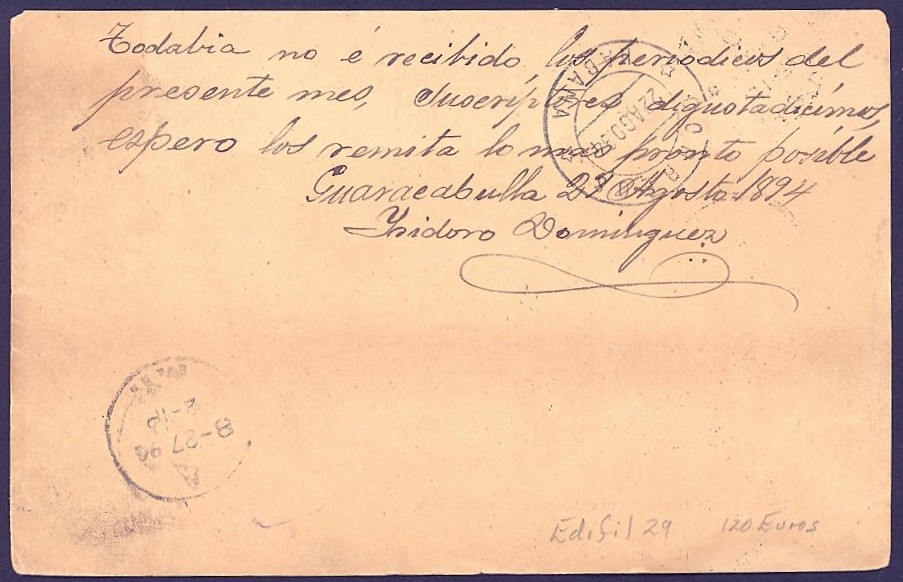 Todabia no é recibido los periodicos del
presente mes, Suscriptores digustadicimos,
espero los remita lo mas pronto posible
Guaracabulla 21 Agosto 1894
Ysidoro Dominguez
HABANA
22 AGO 94
8-27 94
2-1P
Edifil 29 120 Euros